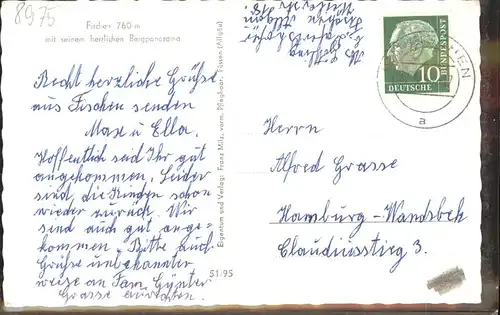 8975
Fischen 760 m
mit seinem herrlichen Bergpanorama
Recht herzliche Grüße
aus Fischen senden
Max u Ella.
Hoffentlich seid Ihr gut
angekommen. Leider
sind die Kinder schon
wieder zurück. Wir
sind auch gut ange-
kommen. Bitte auch
Grüße unbekannter
weise an Fam. Günter
Grasse ausrichten.
Eigentum und Verlag: Franz Milz, vorm. Pfleghaar, Füssen (Allgäu)
51/95
10
DEUTSCHE BUNDESPOST
a
Herrn
Alfred Grasse
Hamburg-Wandsbek
Claudiusstieg 3.